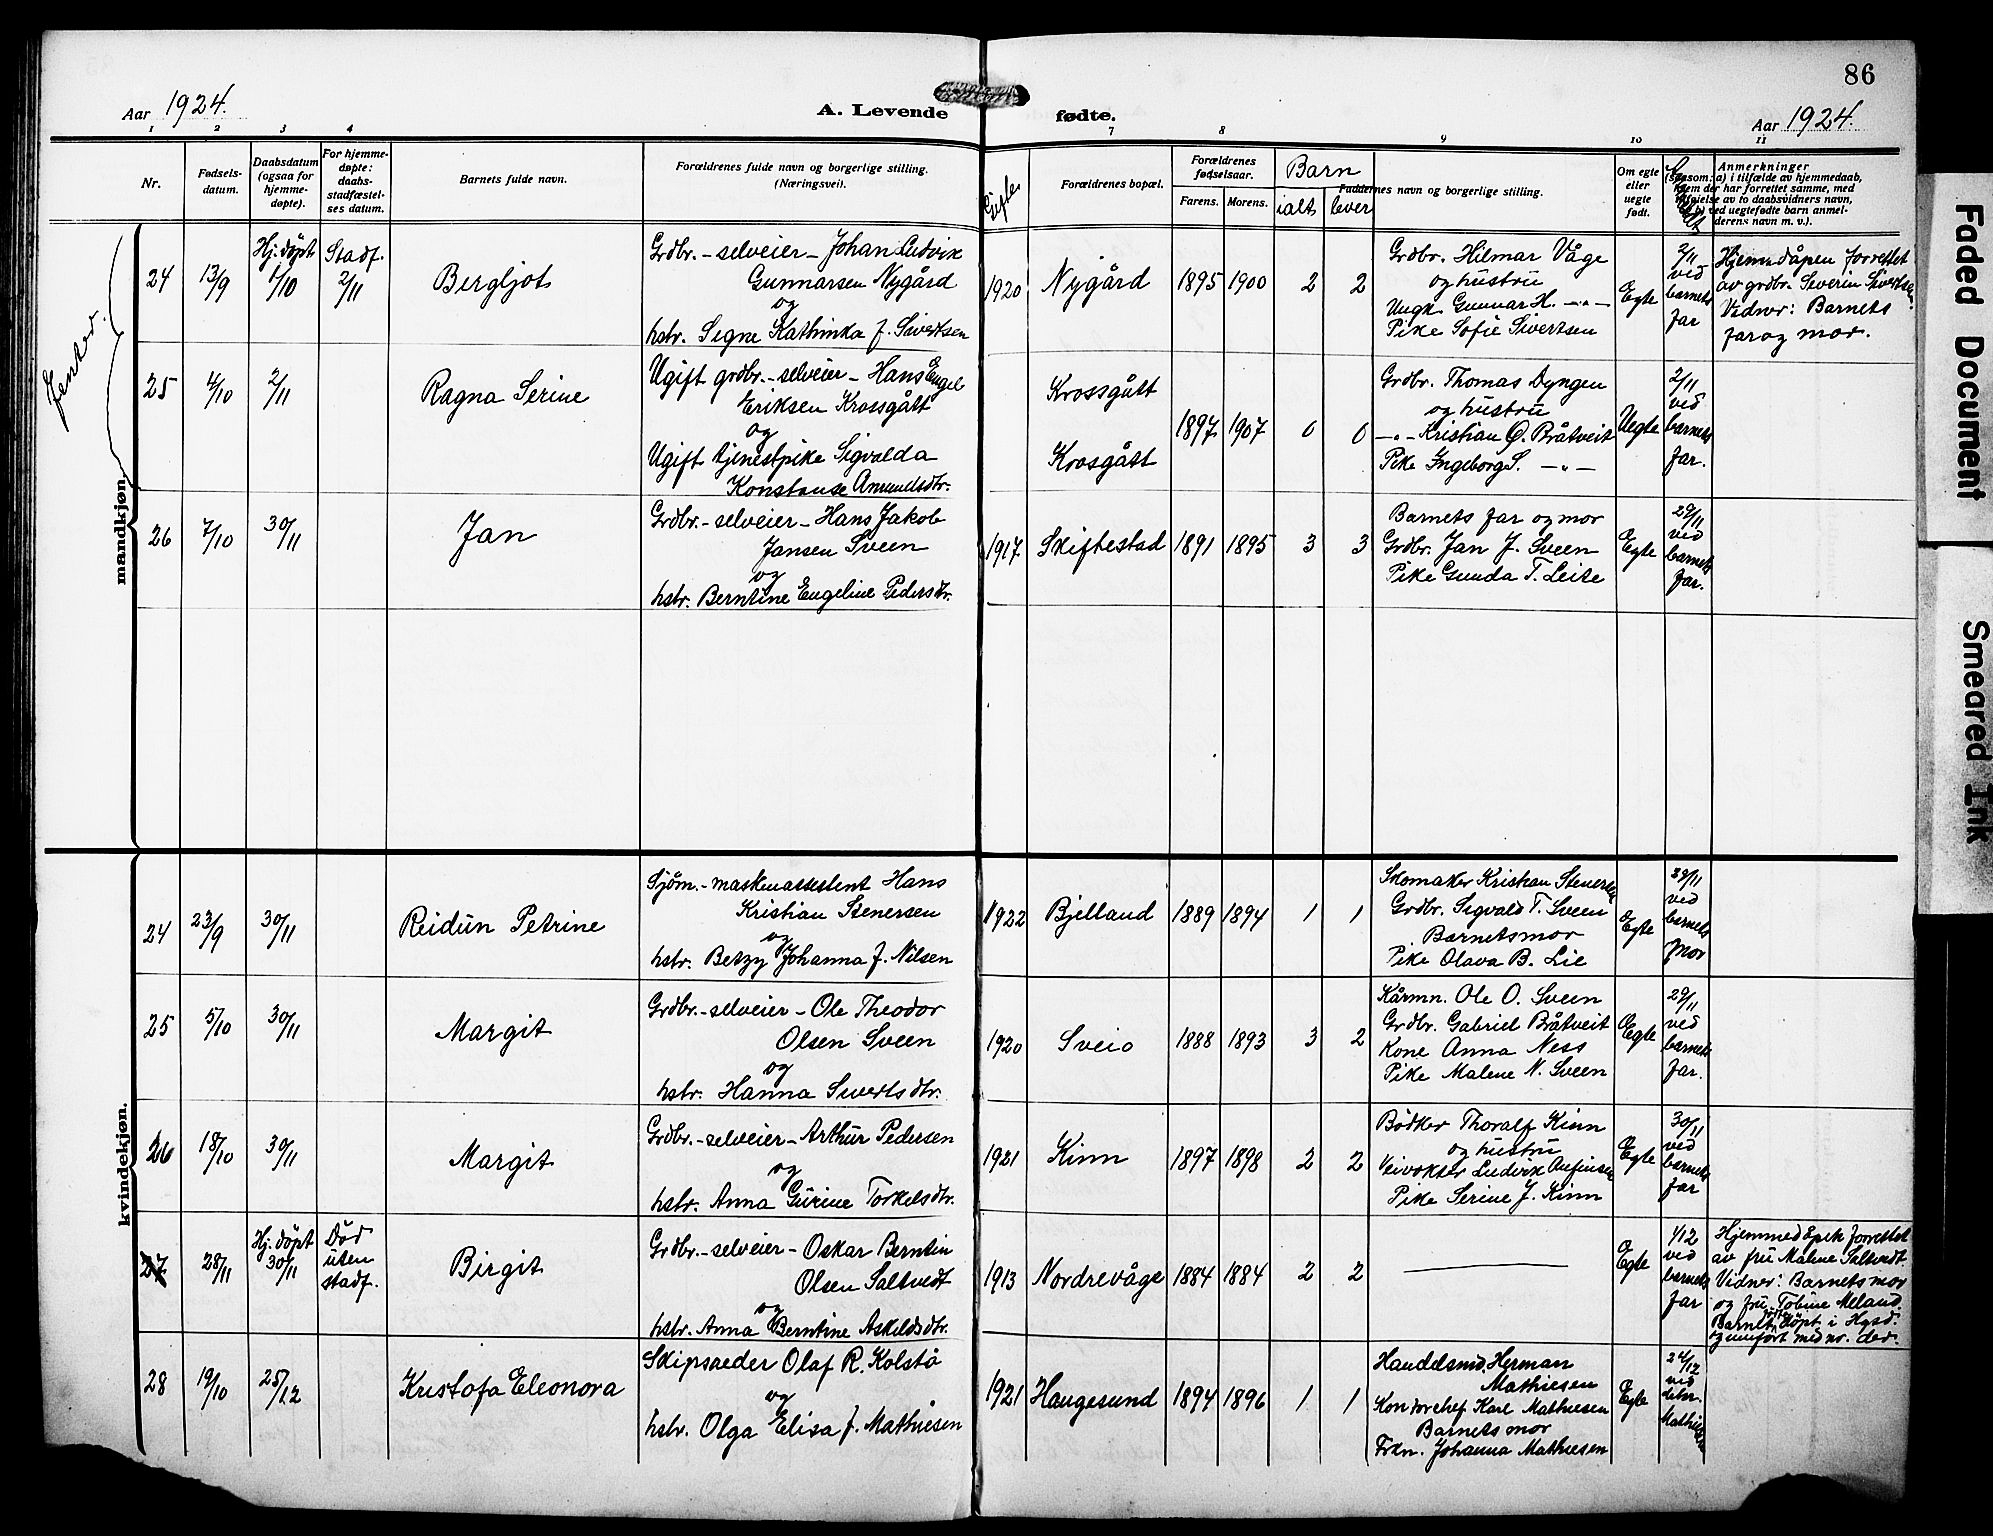 86
Aar 1924.
A. Levende fødte.
Aar 1924.
1 2 3 4 7 8 9 10 11
Nr.
Fødsels-
datum.
Daabsdatum
(ogsaa for
hjemme-
døpte).
For hjemme-
døpte:
daabs-
stadfæstel-
ses datum.
Barnets fulde navn.
Forældrenes fulde navn og borgerlige stilling.
(Næringsvei).
Gifte
Forældrenes bopæl.
Forældrenes
fødselsaar.
Farens. Morens.
Barn
ialt lever
Faddernes navn og borgerlige stilling.
Om egte
eller
uegte
født.
Anmerkninger
(saasom: a) i tilfælde av hjemmedaab,
hvem der har forrettet samme, med
tilføielse av to daabsvidners navn,
b) ved uegtefødte barn anmel-
derens navn m. v.).
Jenter.
mandkjøn.
24 13/9 Hj. døpt 1/10 Stadf. 2/11 Bergljot
Grdbr. - selveier - Johan Ludvik
Gunnarsen Nygård
og
hstr. Signe Kathinka f. Sivertsen
1920 Nygård 1895 1900 2 2
Grdbr. Hilmar Våge
og hustru
Ungk. Gunnar H. -"-
Pike Sofie Sivertsen
Egte
2/11
ved
barnets
far
Hjemmedåpen forrettet
av grdbr. Severin Sivertsen.
Vidner: Barnets
far og mor.
25 4/10 2/11 Ragna Serine
Ugift grdbr. - selveier - Hans Engel
Eriksen Krossgått
og
Ugift tjenestpike Sigvalda
Konstanse Amundsdtr.
Krossgått
Krosgått
1897 1907 0 0
Grdbr. Thomas Dyngen
og hustru
-"- Kristian O. Bråtveit
Pike Ingeborg S. -"-
Uegte
2/11
ved
barnets
far.
26 7/10 30/11 Jan
Grdbr. - selveier - Hans Jakob
Jansen Sveen
og
hstr. Berntine Engeline Pedersdtr.
1917 Skiftestad 1891 1895 3 3
Barnets far og mor
Grdbr. Jan J. Sveen
Pike Gunda T. Leite
Egte
29/11
ved
barnets
far.
kvindekjøn.
24 23/9 30/11 Reidun Petrine
Sjøm. - maskinassestent Hans
Kristian Stenersen
og
hstr. Betzy Johanna f. Nilsen
1922 Bjelland 1889 1894 1 1
Skomaker Kristian Stenersen
Grdbr. Sigvald T. Sveen
Barnets mor
Pike Olava B. Lie
Egte
29/11
ved
barnets
mor
25 5/10 30/11 Margit
Grdbr. - selveier - Ole Theodor
Olsen Sveen
og
hstr. Hanna Sivertsdtr.
1920 Sveio 1888 1893 3 2
Kårmn. Ole O. Sveen
Grdbr. Gabriel Bråtveit
Kone Anna Ness
Pike Malene N. Sveen
Egte
29/11
ved
barnets
far.
26 18/10 30/11 Margit
Grdbr. - selveier - Arthur Pedersen
og
hstr. Anna Gurine Torkelsdtr.
1921 Kinn 1897 1898 2 2
Bødker Thoralf Kinn
og hustru
Veivokter Ludvik Anfinsen
Pike Serine J. Kinn
Egte
30/11
ved
barnets
far
27 28/11 Hj. døpt 30/11 Død uten stadf. Birgit
Grdbr. - selveier - Oskar Berntin
Olsen Saltvedt
og
hstr. Anna Berntine Askeldsdtr.
1913 Nordrevåge 1884 1884 2 2
Egte
1/12
ved
barnets
far
Hjemmedåpen forrettet
av fru Malene Saltvedt
Vidner: Barnets mor
og fru Tobine Meland.
Barnet døpt i Hgsd.
og innført med nr. der.
28 19/10 25/12 Kristofa Eleonora
Skipsreder Olaf R. Kolstø
og
hstr. Olga Elisa f. Mathiesen
1921 Haugesund 1894 1896 1 1
Handelsmd. Herman
Mathiesen
Kontorchef Karl Mathiesen
Barnets mor
Frkn. Johanna Mathiesen
Egte
24/12
ved
Mathiesen
Faded Document
Smeared Ink